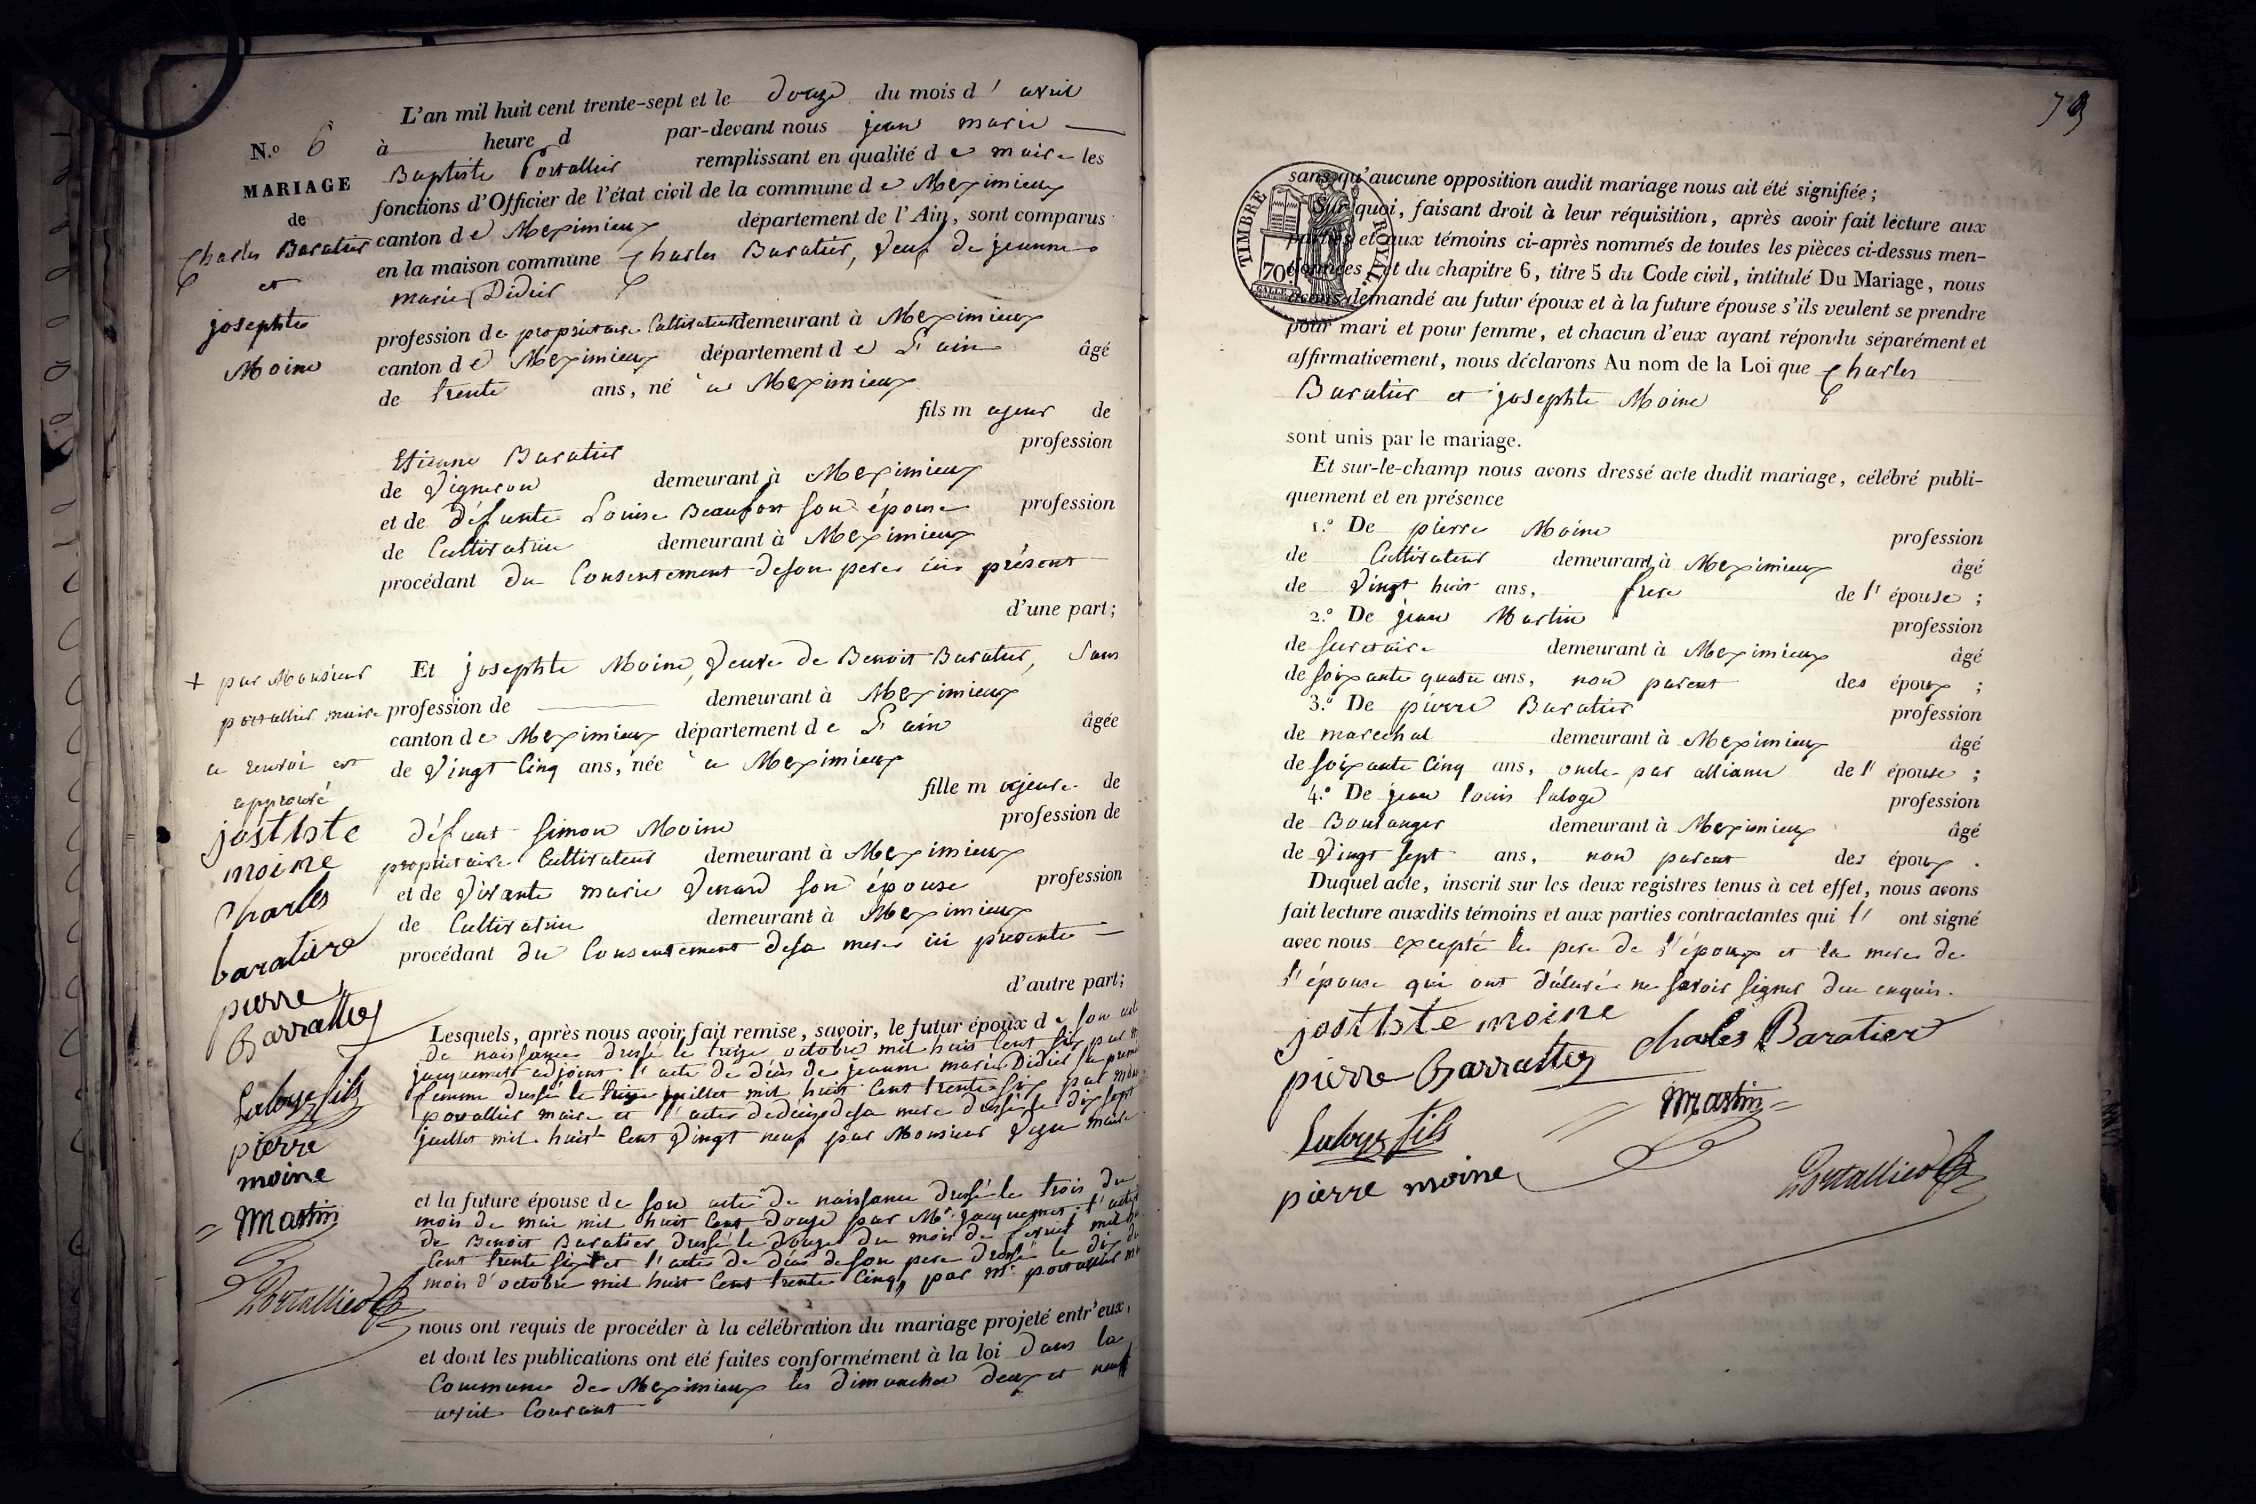 L'an mil huit cent trente-sept et le douze du mois d'avril
N.o 6 à heure d par-devant nous jean marie
Baptiste Portallier remplissant en qualité de maire les
MARIAGE
fonctions d'Officier de l'état civil de la commune de Meximieux
de
canton de Meximieux département de l'Ain, sont comparus
Charles Baratier
en la maison commune Charles Baratier, veuf de jeanne
et
marie Didier
josephte
profession de propriétaire Cultivateur demeurant à Meximieux
Moine
canton de Meximieux département de L'ain âgé
de trente ans, né à Meximieux
fils majeur de
Etienne Baratier profession
de Vigneron demeurant à Meximieux
et de défunte Louise Beaufort son épouse profession
de Cultivatrice demeurant à Meximieux
procédant du Consentement de son pere ici présent
d'une part;
Et josephte Moine, veuve de Benoit Baratier, Sans
profession de demeurant à Meximieux
canton de Meximieux département de L'ain âgée
de vingt Cinq ans, née à Meximieux
fille majeure de
défunt Simon Moine profession de
propriétaire Cultivateur demeurant à Meximieux
et de vivante marie Venard son épouse profession
de Cultivatrice demeurant à Meximieux
procédant du Consentement de sa mere ici presente
d'autre part;
+ par Monsieur
portallier maire
ce renvoi est
approuvé
josthste
moine
Charles
baratier
pierre
Barratier
Laloge fils
pierre
moine
Martin
Portallier
Lesquels, après nous avoir fait remise, savoir, le futur époux de son acte
de naissance dressé le treize octobre mil huit cent six par
jacquemet adjoint l'acte de décès de jeanne marie Didier sa
femme dressé le juillet mil huit Cent trente six par
portallier maire et l'acte de décès de sa mere dressé le dix sept
juillet mil huit Cent vingt neuf par Monsieur maire
et la future épouse de son acte de naissance dressé le trois du
mois de mai mil huit Cent douze par Mr. jacquemet, l'acte
de Benoit Baratier dressé le douze du mois de mil
Cent trente six et l'acte de décès de son pere dressé le dix du
mois d'octobre mil huit Cent trente Cinq, par Mr. portallier
nous ont requis de procéder à la célébration du mariage projeté entr'eux,
et dont les publications ont été faites conformément à la loi dans la
Commune de Meximieux les dimanches deux et neuf
avril Courant
sans qu'aucune opposition audit mariage nous ait été signifiée;
Sur quoi, faisant droit à leur réquisition, après avoir fait lecture aux
parties et aux témoins ci-après nommés de toutes les pièces ci-dessus men-
tionnées, et du chapitre 6, titre 5 du Code civil, intitulé Du Mariage, nous
avons demandé au futur époux et à la future épouse s'ils veulent se prendre
pour mari et pour femme, et chacun d'eux ayant répondu séparément et
affirmativement, nous déclarons Au nom de la Loi que Charles
Baratier et josephte Moine
TIMBRE ROYAL
70c
sont unis par le mariage.
Et sur-le-champ nous avons dressé acte dudit mariage, célébré publi-
quement et en présence
1.o De pierre Moine profession
de Cultivateur demeurant à Meximieux âgé
de vingt huit ans, frere de l'épouse;
2.o De jean Martin profession
de secretaire demeurant à Meximieux âgé
de soixante quatre ans, non parent des époux;
3.o De pierre Baratier profession
de marechal demeurant à Meximieux âgé
de soixante Cinq ans, oncle par alliance de l'épouse;
4.o De jean louis Laloge profession
de Boulanger demeurant à Meximieux âgé
de vingt sept ans, non parent des époux.
Duquel acte, inscrit sur les deux registres tenus à cet effet, nous avons
fait lecture auxdits témoins et aux parties contractantes qui l'ont signé
avec nous excepté le pere de l'époux et la mere de
l'épouse qui ont déclaré ne savoir signer de ce enquis.
josthste moine
pierre Barratier Charles Baratier
Martin
Laloge fils
pierre moine
Portallier